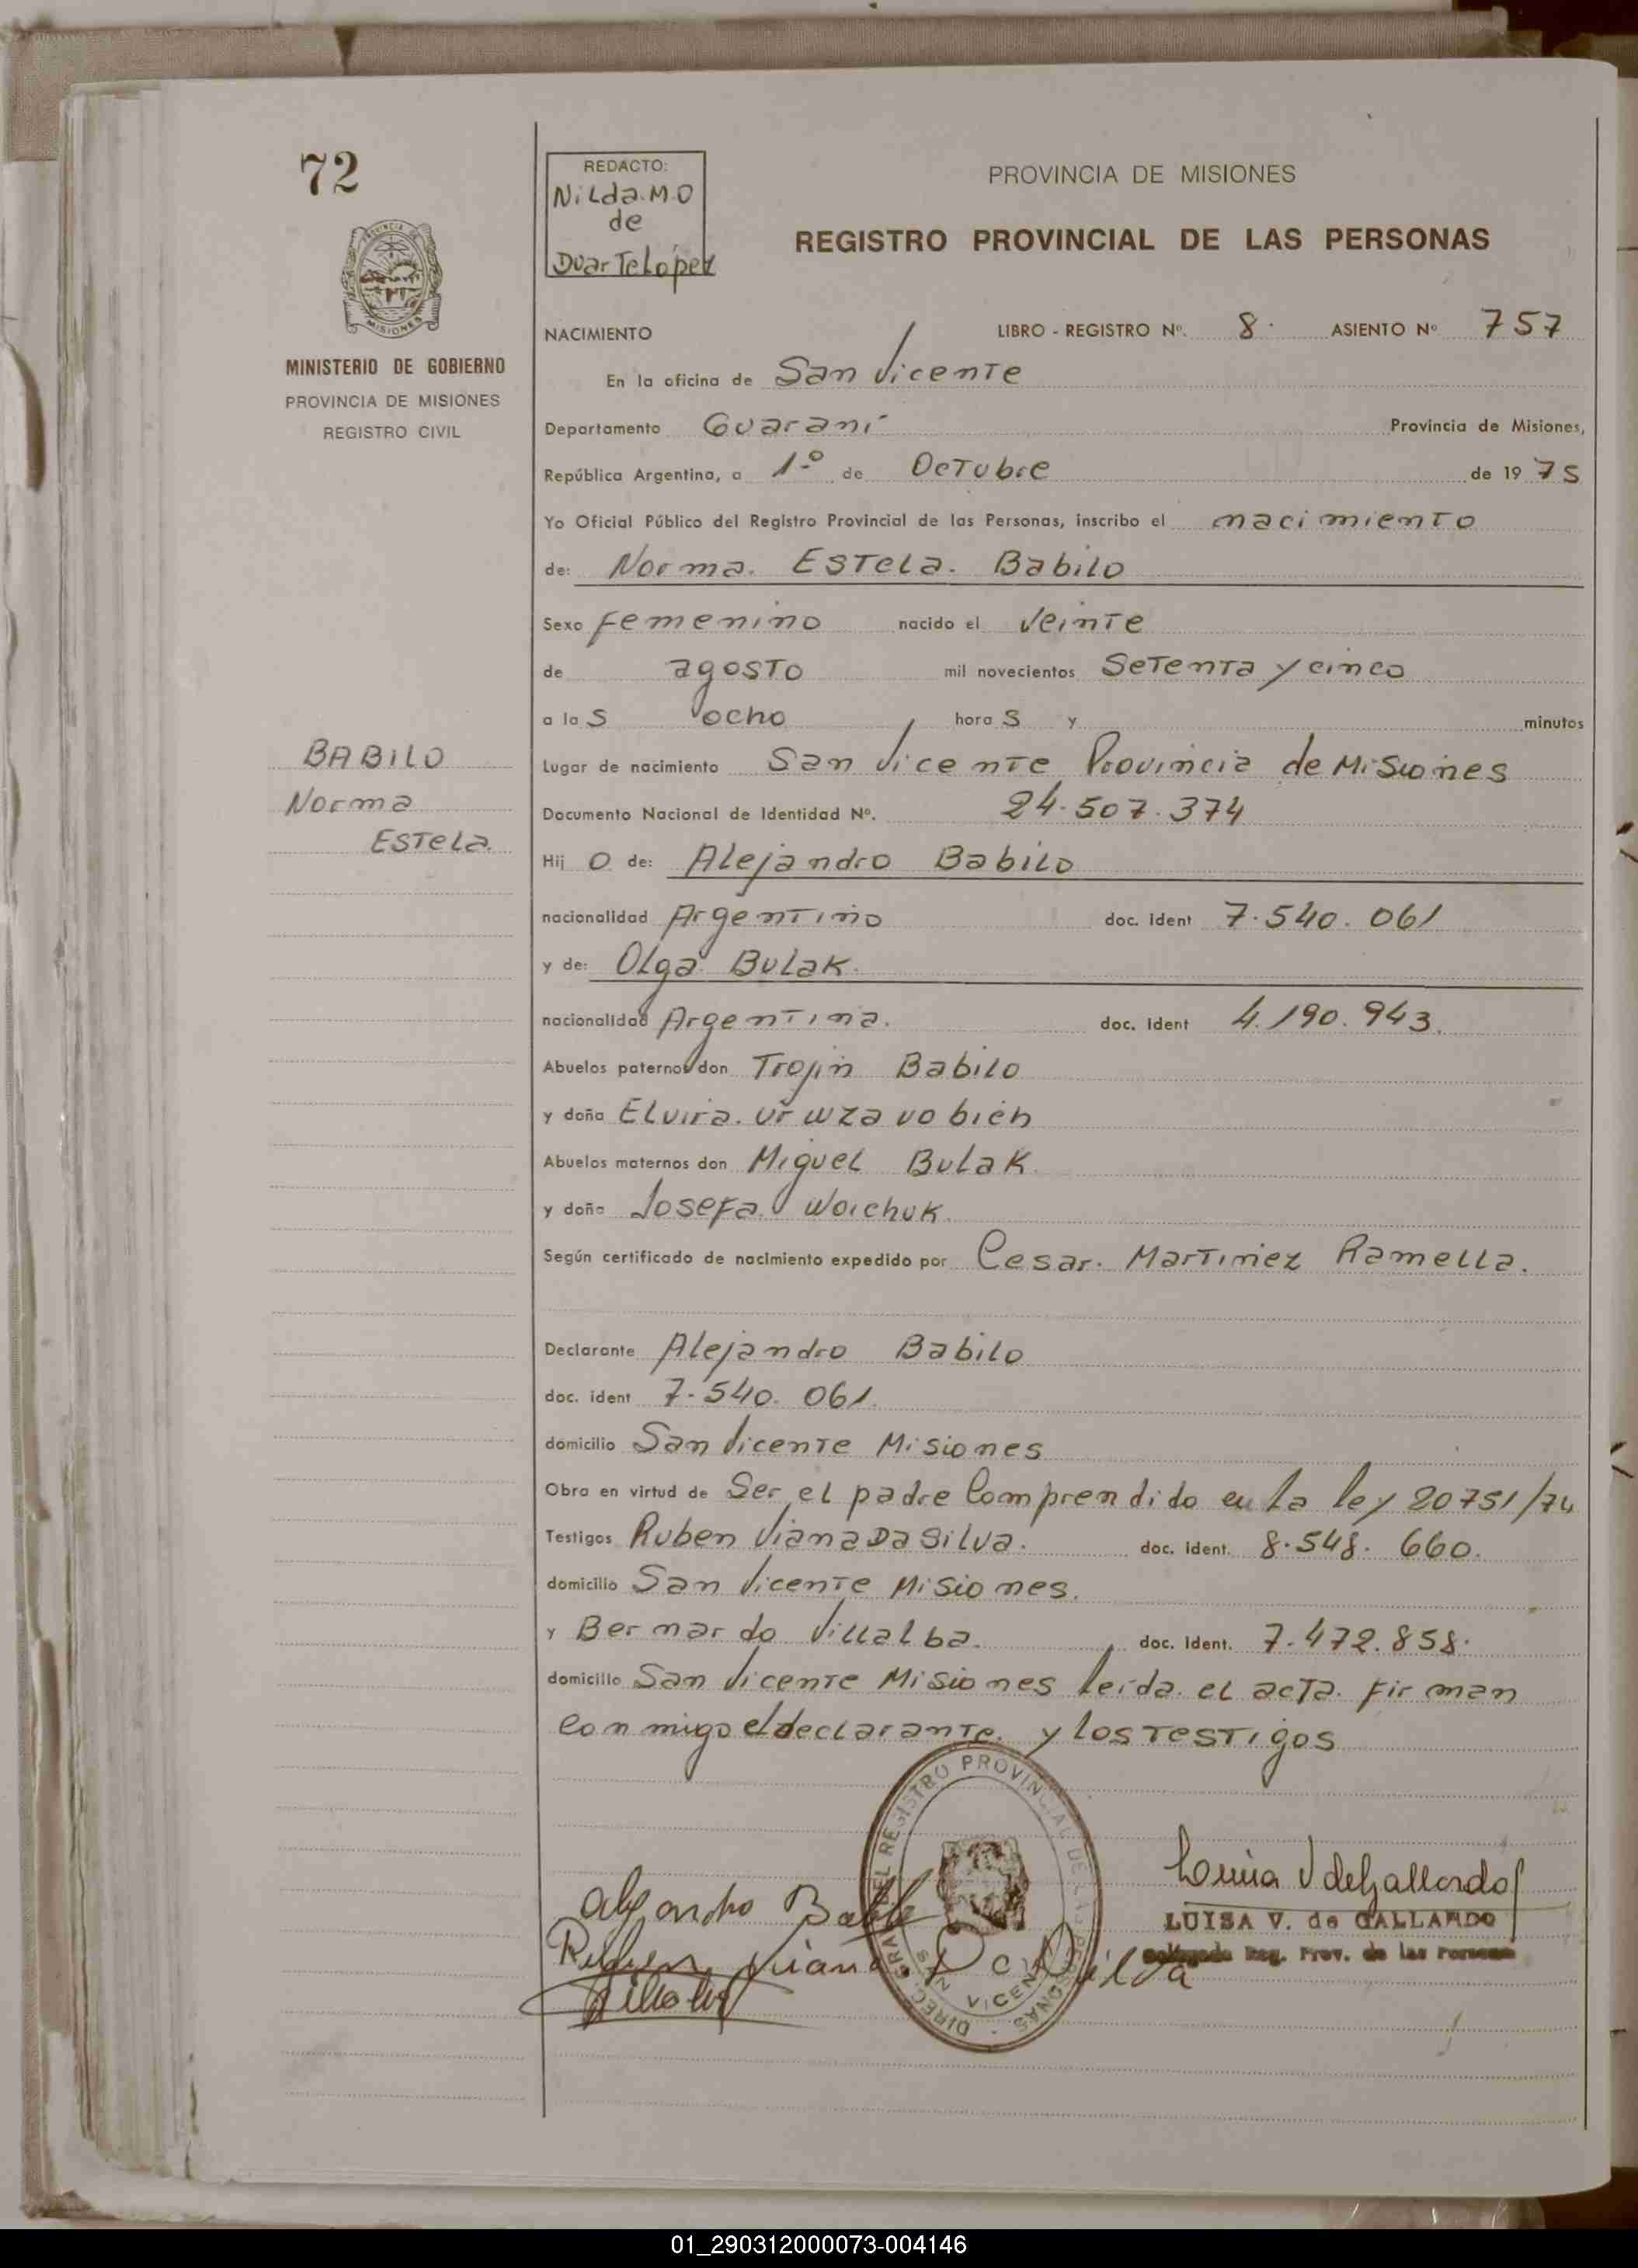 72
REDACTO:
Nilda.M.O
de
Duarte López
PROVINCIA DE MISIONES
REGISTRO PROVINCIAL DE LAS PERSONAS
PROVINCIA DE
MISIONES
MINISTERIO DE GOBIERNO
PROVINCIA DE MISIONES
REGISTRO CIVIL
NACIMIENTO LIBRO - REGISTRO Nº. 8. ASIENTO Nº 757
En la oficina de San Vicente
Departamento Guaraní Provincia de Misiones,
República Argentina, a 1º de Octubre de 1975
Yo Oficial Público del Registro Provincial de las Personas, inscribo el nacimiento
de: Norma. Estela. Babilo
Sexo femenino nacido el veinte
de agosto mil novecientos Setenta y cinco
a las ocho horas y minutos
BABILO
Norma
Estela.
Lugar de nacimiento San Vicente Provincia de Misiones
Documento Nacional de Identidad Nº. 24.507.374
Hij o de: Alejandro Babilo
nacionalidad Argentino doc. ident 7.540.061
y de: Olga Bulak.
nacionalidad Argentina. doc. ident 4.190.943.
Abuelos paternos don Trojin Babilo
y doña Elvira.
Abuelos maternos don Miguel Bulak.
y doña Josefa Woichuk.
Según certificado de nacimiento expedido por Cesar. Martinez Ramella.
Declarante Alejandro Babilo
doc. ident 7.540.061.
domicilio San Vicente Misiones
Obra en virtud de Ser el padre Comprendido en la ley 20751/74
Testigos Ruben Viana Da Silva. doc. ident. 8.548.660.
domicilio San Vicente Misiones.
y Bernardo Villalba. doc. Ident. 7.472.858.
domicilio San Vicente Misiones leída el acta. firman
conmigo el declarante. y los testigos
DIREC. GRAL. DEL REGISTRO PROVINCIAL DE LAS PERSONAS
SAN VICENTE
Alejandro Babilo
Luisa V de Gallardo
LUISA V. de GALLARDO
Delegada Reg. Prov. de las Personas
Ruben Viana Da Silva
Villalba
01_290312000073-004146